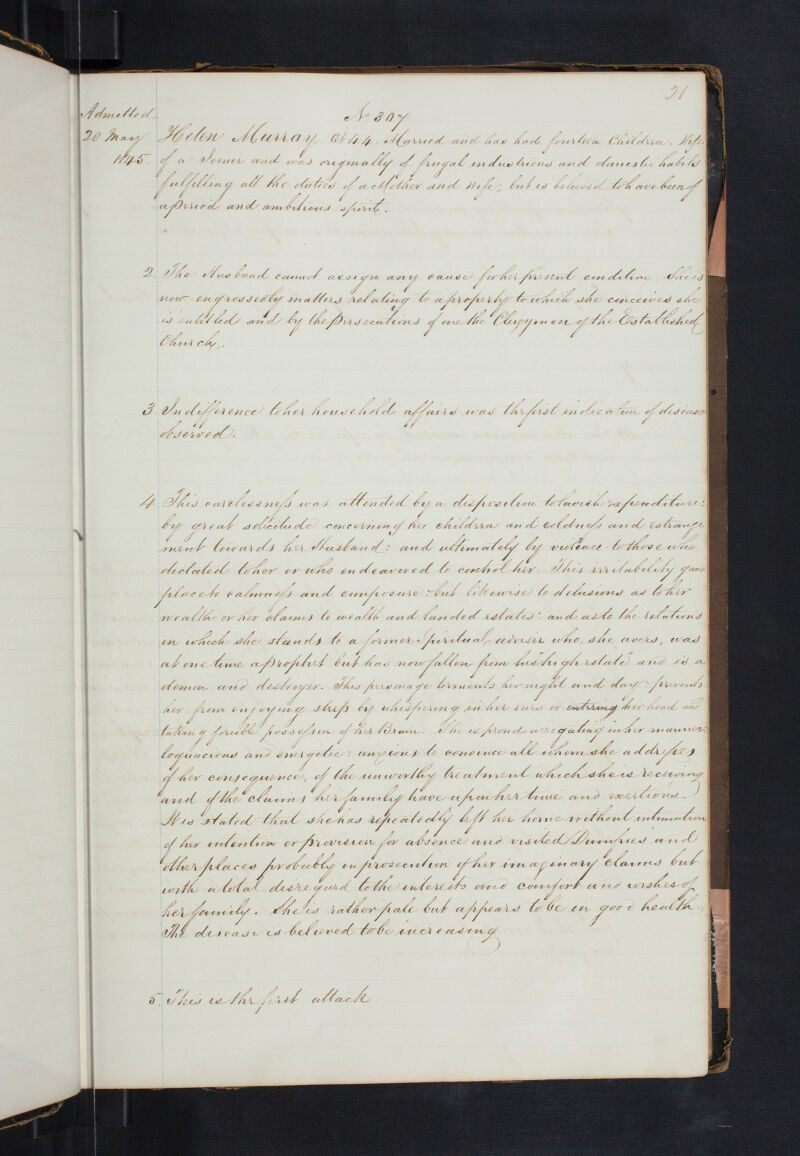 21
Admitted
20 May
1845.
No 307
Helen Murray Æt 44. Married and has had fourteen Children. Wife
of a Joiner and was originally of frugal industrious and domestic habits
fulfilling all the duties of a Mother and wife; but is believed to have been of
a period and ambitious spirit.
2. The Husband cannot assign any cause for her present condition. She is
now engrossed by matters relating to a property to which she conceives she
is entitled and by the persecutions of one the Clergymen of the Established
Church.
3. Indifference to her household affairs was the first indication of disease
observed.
4 This carelessness was attended by a disposition to lavish expenditure:
by great solicitude concerning her children and coldness and estrange
ment towards her Husband: and ultimately by violence to those who
dictated to her or who endeavored to control her. This irritability gave
place to calmness and composure: but likewise to delusions as to her
wealth or her claims to wealth and landed estates: and as to the relations
in which she stands to a former Spiritual adviser who, she avers, was
at one time a prophet but has now fallen from his high estate and is a
demon and destroyer. This personage torments her night and day: prevents
her from enjoying sleep by whispering in her ears or entering her head and
taking forcible possession of her Brain. She is proud arrogating in her manner:
loquacious and energetic: anxious to convince all whom she addresses
of her consequence, of the unworthy treatment which she is receiving
and of the claims her family have upon her time and exertions.
It is stated that she has repeatedly left her home without intimation
of her intention or provision for absence and visited Dumfries and
other places probably in prosecution of her imaginary claims but
with a total disregard to the interests and comfort and wishes of
her family. She is rather pale but appears to be in good health:
The disease is believed to be increasing
5. This is the first attack